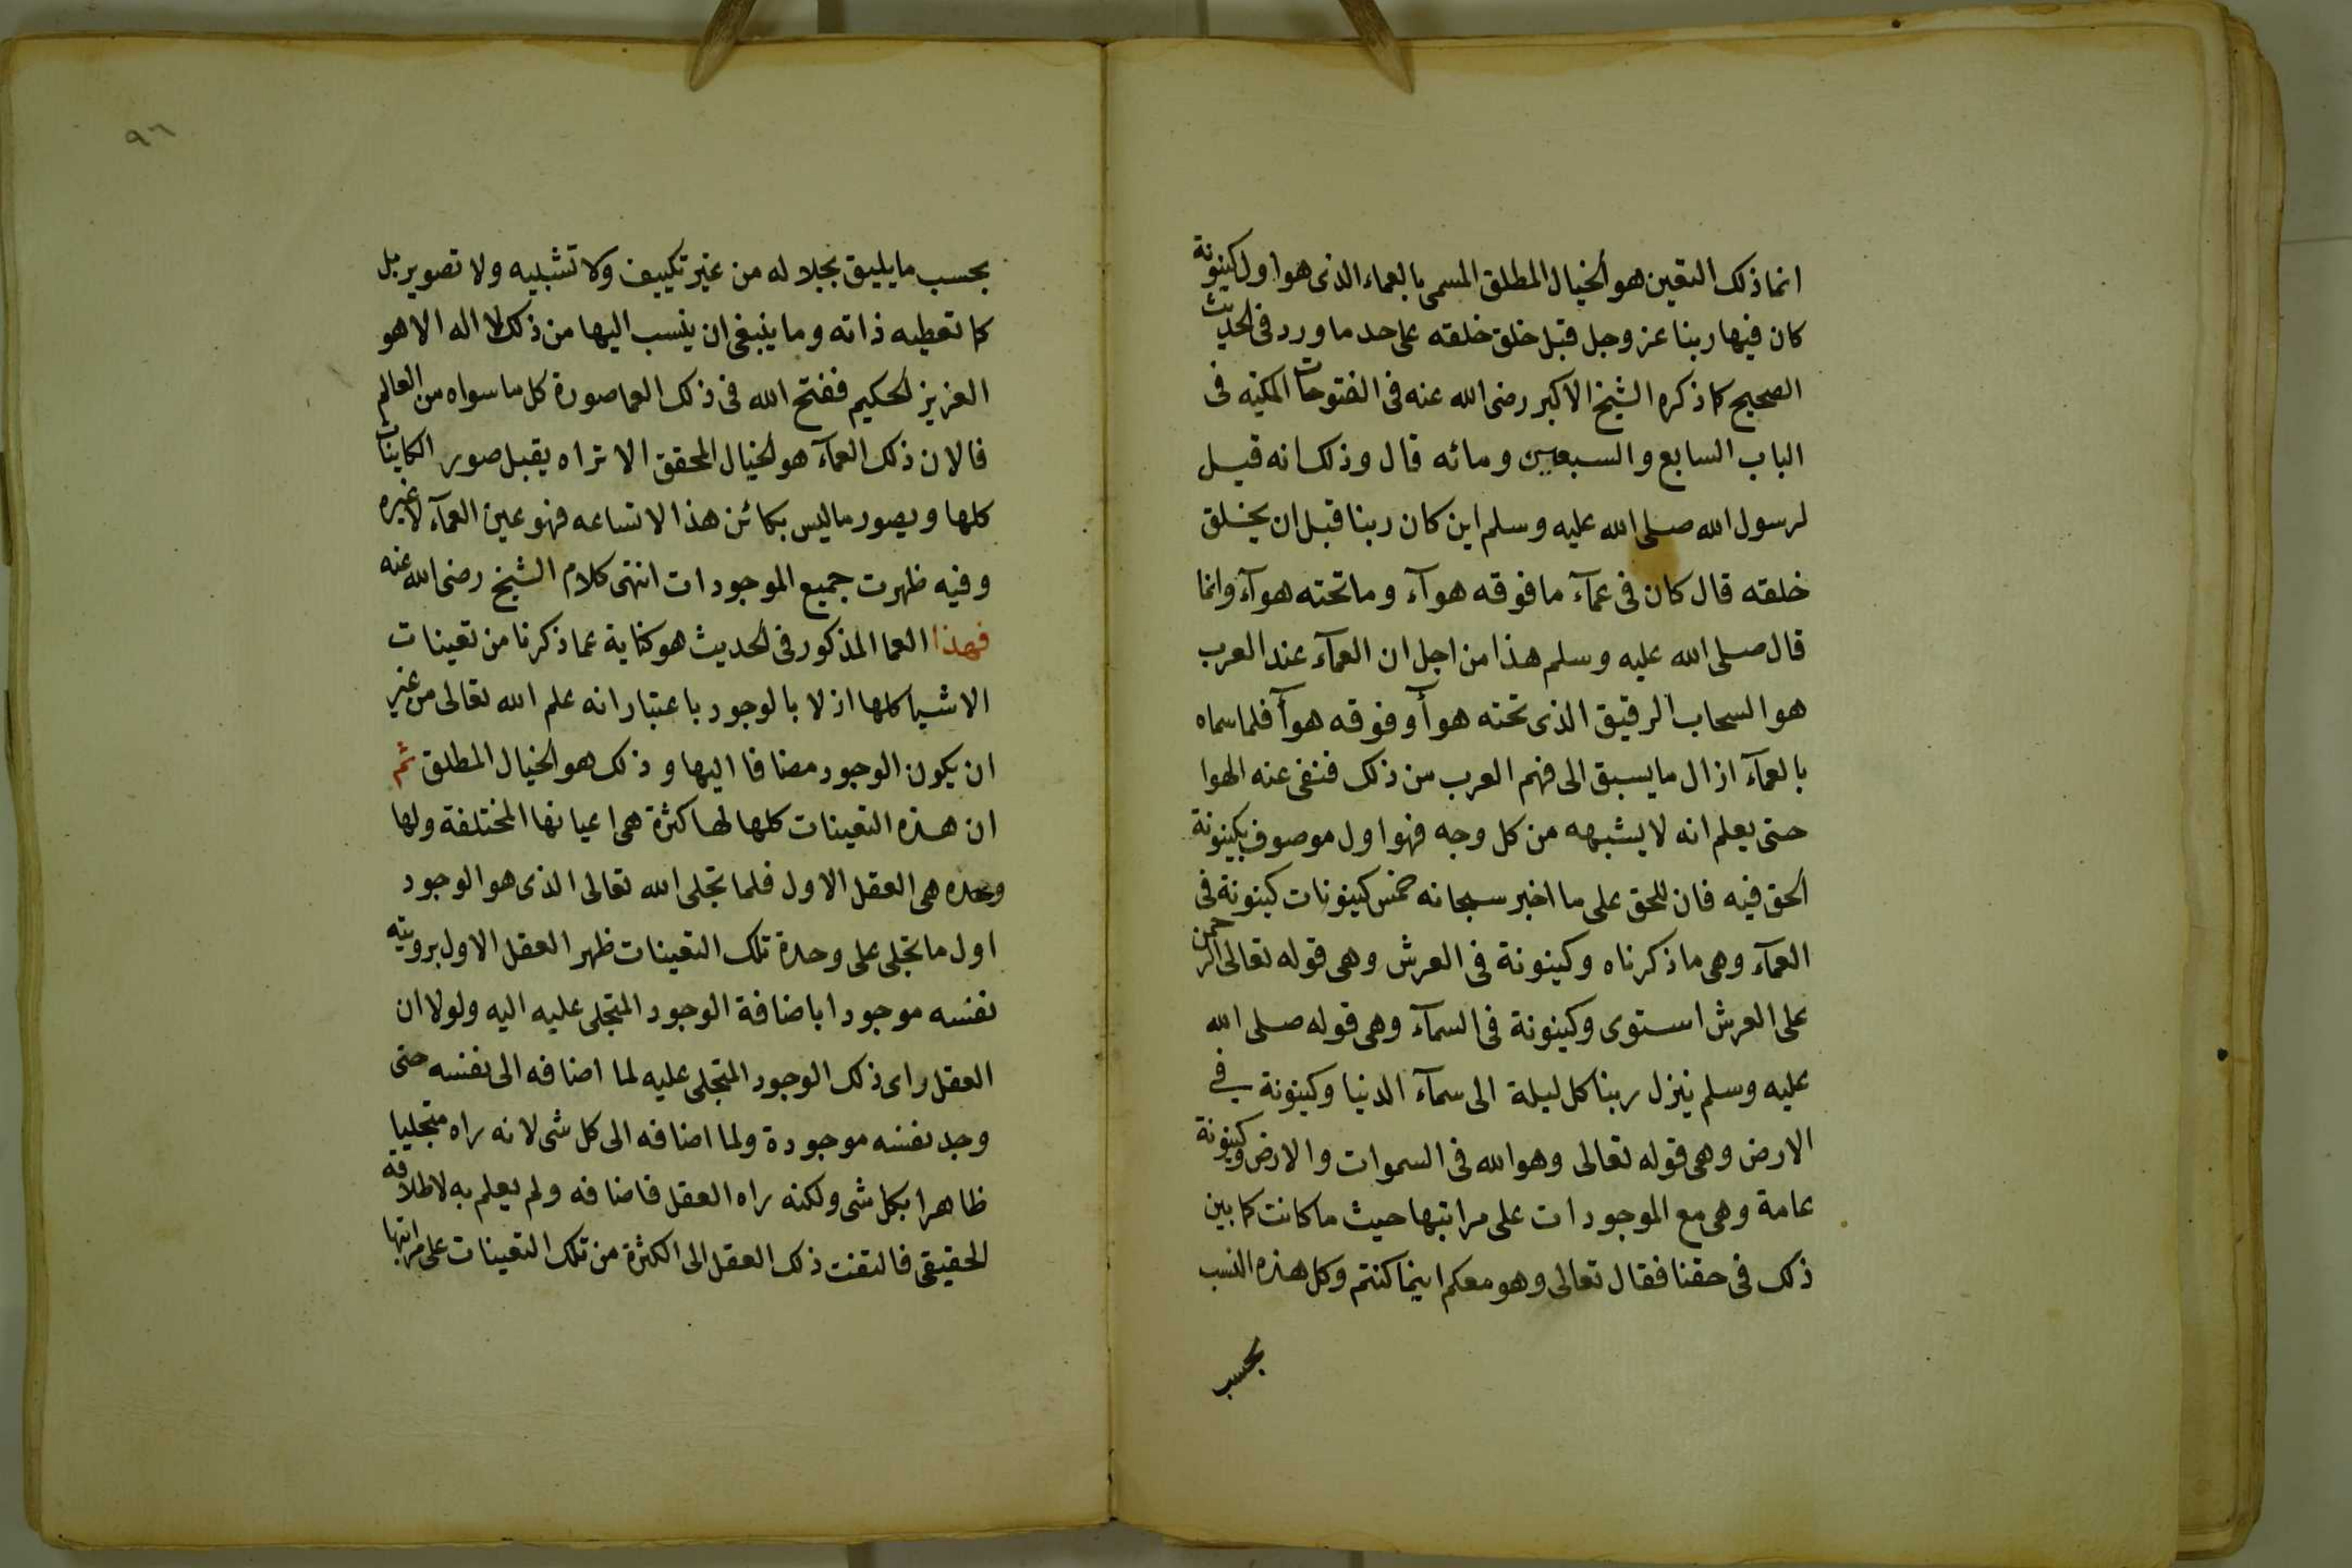 انما ذلك التعين هو الخيال المطلق المسمى بالعماء الذى هو اول كينونة
كان فيها ربنا عز وجل قبل خلق خلقه على حد ما ورد فى الحديث
الصحيح كما ذكره الشيخ الاكبر رضى الله عنه فى الفتوحات المكيه فى
الباب السابع والسبعين ومائه قال وذلك انه قيل
لرسول الله صلى الله عليه وسلم اين كان ربنا قبل ان يخلق
خلقه قال كان فى عمآء ما فوقه هوآء وما تحته هوآء وانما
قال صلى الله عليه وسلم هذا من اجل ان العمآء عند العرب
هو السحاب الرقيق الذى تحته هوآ وفوقه هوآ فلما سماه
بالعمآء ازال ما يسبق الى فهم العرب من ذلك فنفى عنه الهوا
حتى يعلم انه لا يشبهه من كل وجه فهو اول موصوف بكينونة
الحق فيه فان للحق على ما اخبر سبحانه خمس كينونات كينونة فى
العمآء وهى ما ذكرناه وكينونة فى العرش وهى قوله تعالى الرحمن
على العرش استوى وكينونة فى السمآء وهى قوله صلى الله
عليه وسلم ينزل ربنا كل ليلة الى سمآء الدنيا وكينونة فى
الارض وهى قوله تعالى وهو الله فى السموات والارض وكينونة
عامة وهى مع الموجودات على مراتبها حيث ما كانت كما بين
ذلك فى حقنا فقال تعالى وهو معكم اينما كنتم وكل هذه النسب
بحسب
٩٦
بحسب ما يليق بجلاله من غير تكييف ولا تشبيه ولا تصوير بل
كما تعطيه ذاته وما ينبغى ان ينسب اليها من ذلك لا اله الا هو
العزيز الحكيم ففتح الله فى ذلك العما صورة كل ما سواه من العالم
فالان ذلك العمآء هو الخيال المحقق الا تراه يقبل صور الكاينات
كلها ويصور ما ليس بكائن هذا لاتساعه فهو عين العمآء لا غيره
وفيه ظهرت جميع الموجودات انتهى كلام الشيخ رضى الله عنه
فهذا العما المذكور فى الحديث هو كناية عما ذكرنا من تعينات
الاشيا كلها ازلا بالوجود باعتبار انه علم الله تعالى من غير
ان يكون الوجود مضافا اليها وذلك هو الخيال المطلق ثم
ان هذه التعينات كلها لها كثرة هى اعيانها المختلفة ولها
وحده هى العقل الاول فلما تجلى الله تعالى الذى هو الوجود
اول ما تجلى على وحدة تلك التعينات ظهر العقل الاول برويته
نفسه موجودا باضافة الوجود المتجلى عليه اليه ولولا ان
العقل راى ذلك الوجود المتجلى عليه لما اضافه الى نفسه حتى
وجد نفسه موجودة ولما اضافه الى كل شى لانه راه متجليا
ظاهرا بكل شى ولكنه راه العقل فاضافه ولم يعلم به لاطلاقه
الحقيقى فالتفت ذلك العقل الى الكثرة من تلك التعينات على مراتبها